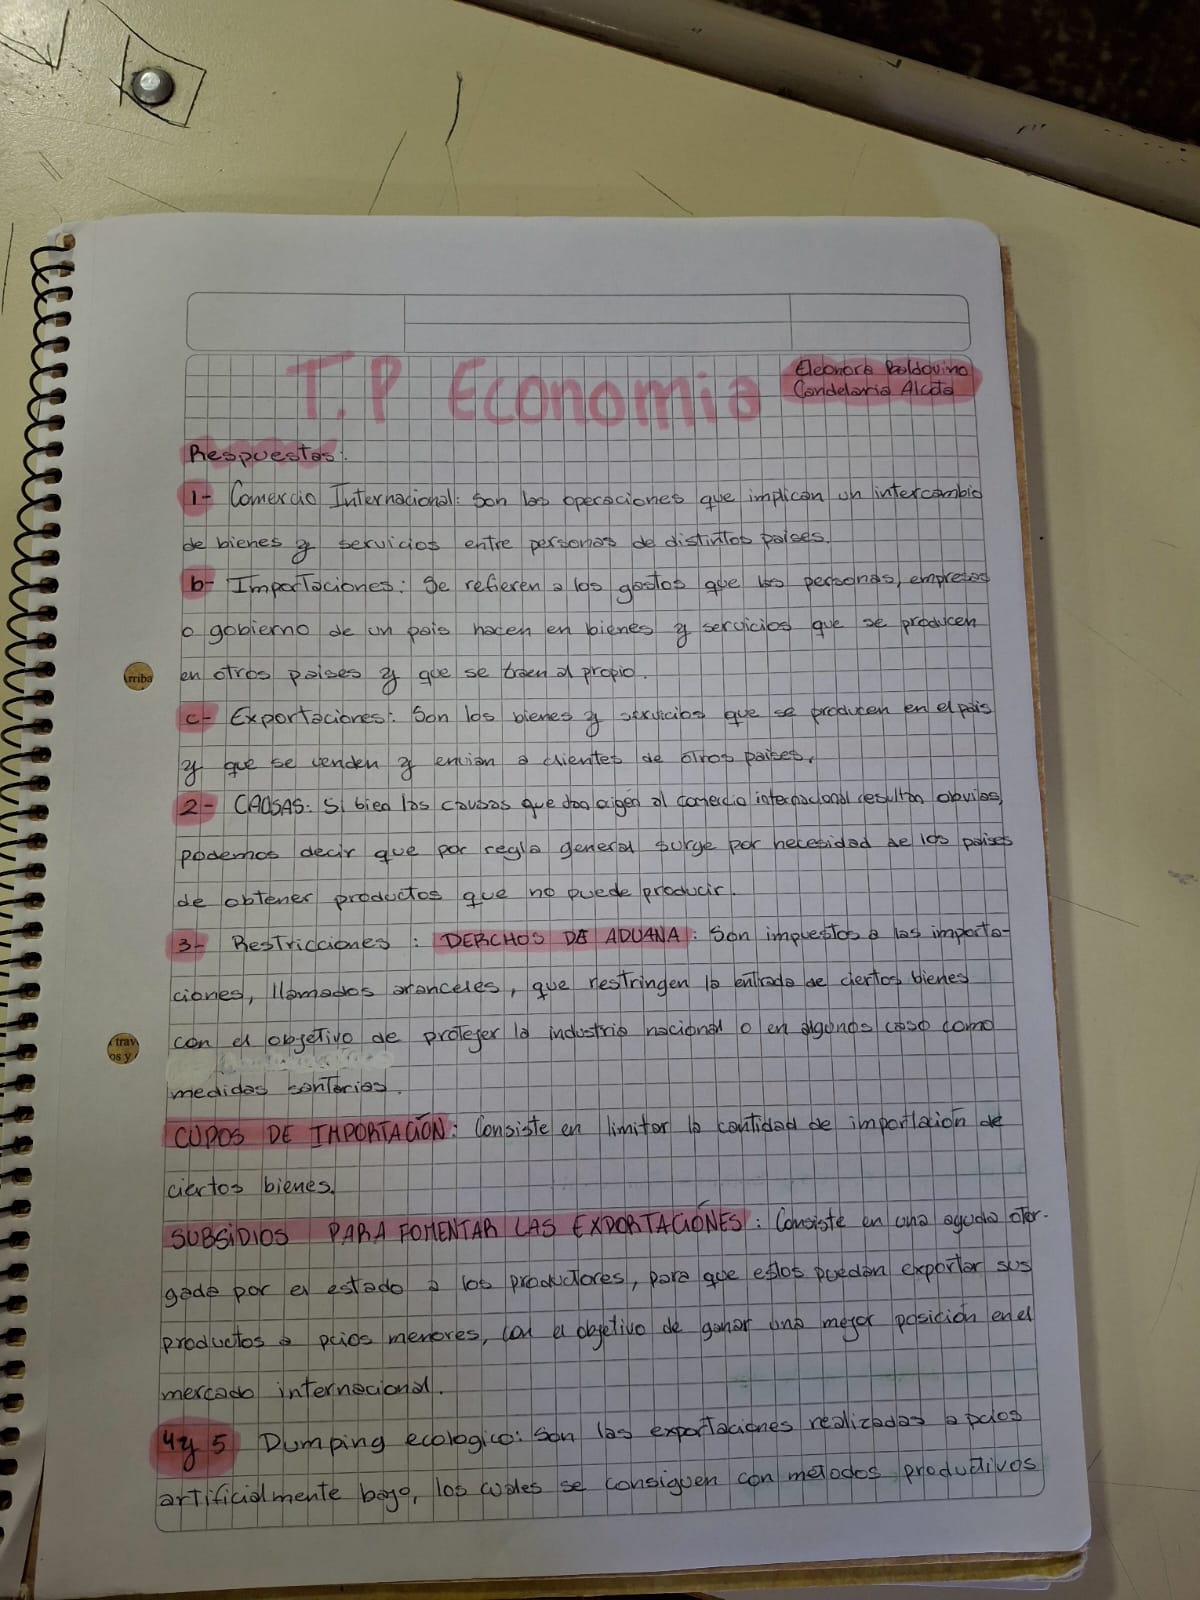 T.P Economia
Eleonora Baldovino
Candelaria Alcota
Respuestas:
1- Comercio Internacional: Son las operaciones que implican un intercambio
de bienes y servicios entre personas de distintos paises.
b- Importaciones: Se refieren a los gastos que las personas, empresas
o gobierno de un pais hacen en bienes y servicios que se producen
en otros paises y que se traen al propio.
c- Exportaciones: Son los bienes y servicios que se producen en el pais
y que se venden y envian a clientes de otros paises.
2- CAUSAS: Si bien las causas que dan origen al comercio internacional resultan obvias,
podemos decir que por regla general surge por necesidad de los paises
de obtener productos que no puede producir.
3- Restricciones: DERCHOS DE ADUANA: Son impuestos a las importa-
ciones, llamados aranceles, que restringen la entrada de ciertos bienes
con el objetivo de proteger la industria nacional o en algunos caso como
medidas santarias.
CUPOS DE IMPORTACIÓN: Consiste en limitar la cantidad de importacion de
ciertos bienes.
SUBSIDIOS PARA FOMENTAR LAS EXPORTACIÓNES: Consiste en una ayuda otor-
gada por el estado a los productores, para que estos puedan exportar sus
productos a pcios menores, con el objetivo de ganar una mejor posición en el
mercado internacional.
4y 5 Dumping ecologico: Son las exportaciones realizadas a pcios
artificialmente bajo, los cuales se consiguen con metodos productivos
rriba
trav
os y